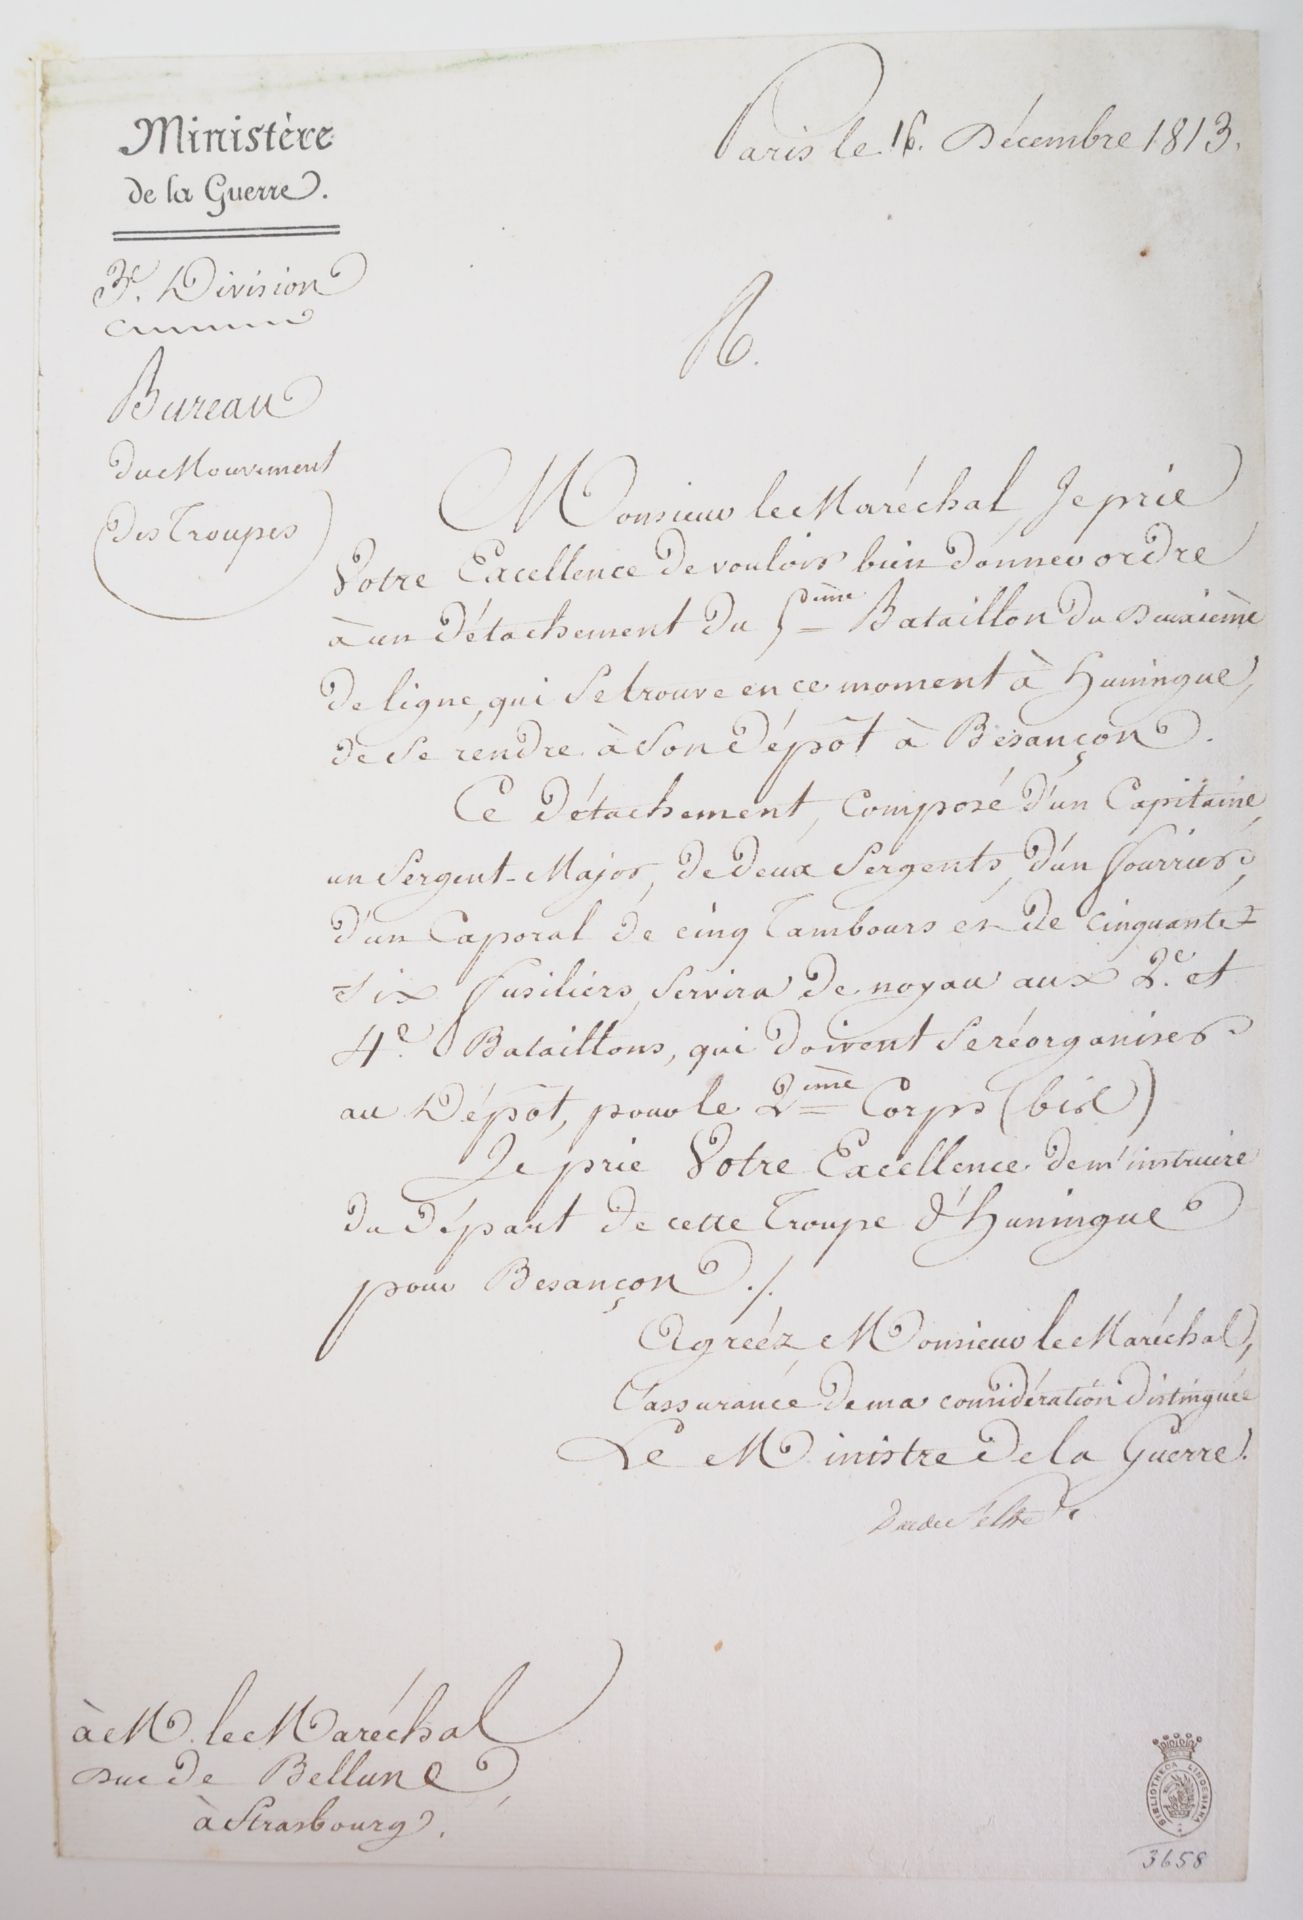 Ministère
de la Guerre.
Paris le 16. Décembre 1813.
3e. Division
Bureau
du Mouvement
des Troupes
R.
Monsieur le Maréchal, Je prie
Votre Excellence de vouloir bien donner ordre
à un détachement du 5ème Bataillon du Deuxième
de ligne, qui se trouve en ce moment à Huningue,
de se rendre à son dépôt à Besançon.
Ce détachement, composé d'un Capitaine,
un Sergent-Major, de deux Sergents, d'un fourrier,
d'un Caporal de cinq Tambours et de cinquante-
six fusiliers, servira de noyau aux 2e. et
4e. Bataillons, qui doivent se réorganiser
au Dépôt, pour le 2ème Corps (bis)
Je prie Votre Excellence de m'instruire
du départ de cette Troupe d'Huningue
pour Besançon ./.
Agréez, Monsieur le Maréchal,
l'assurance de ma considération distinguée
Le Ministre de la Guerre.
Duc de Feltre
à M. le Maréchal
Duc de Bellune,
à Strasbourg.
BIBLIOTHECA LINDESIANA
3658